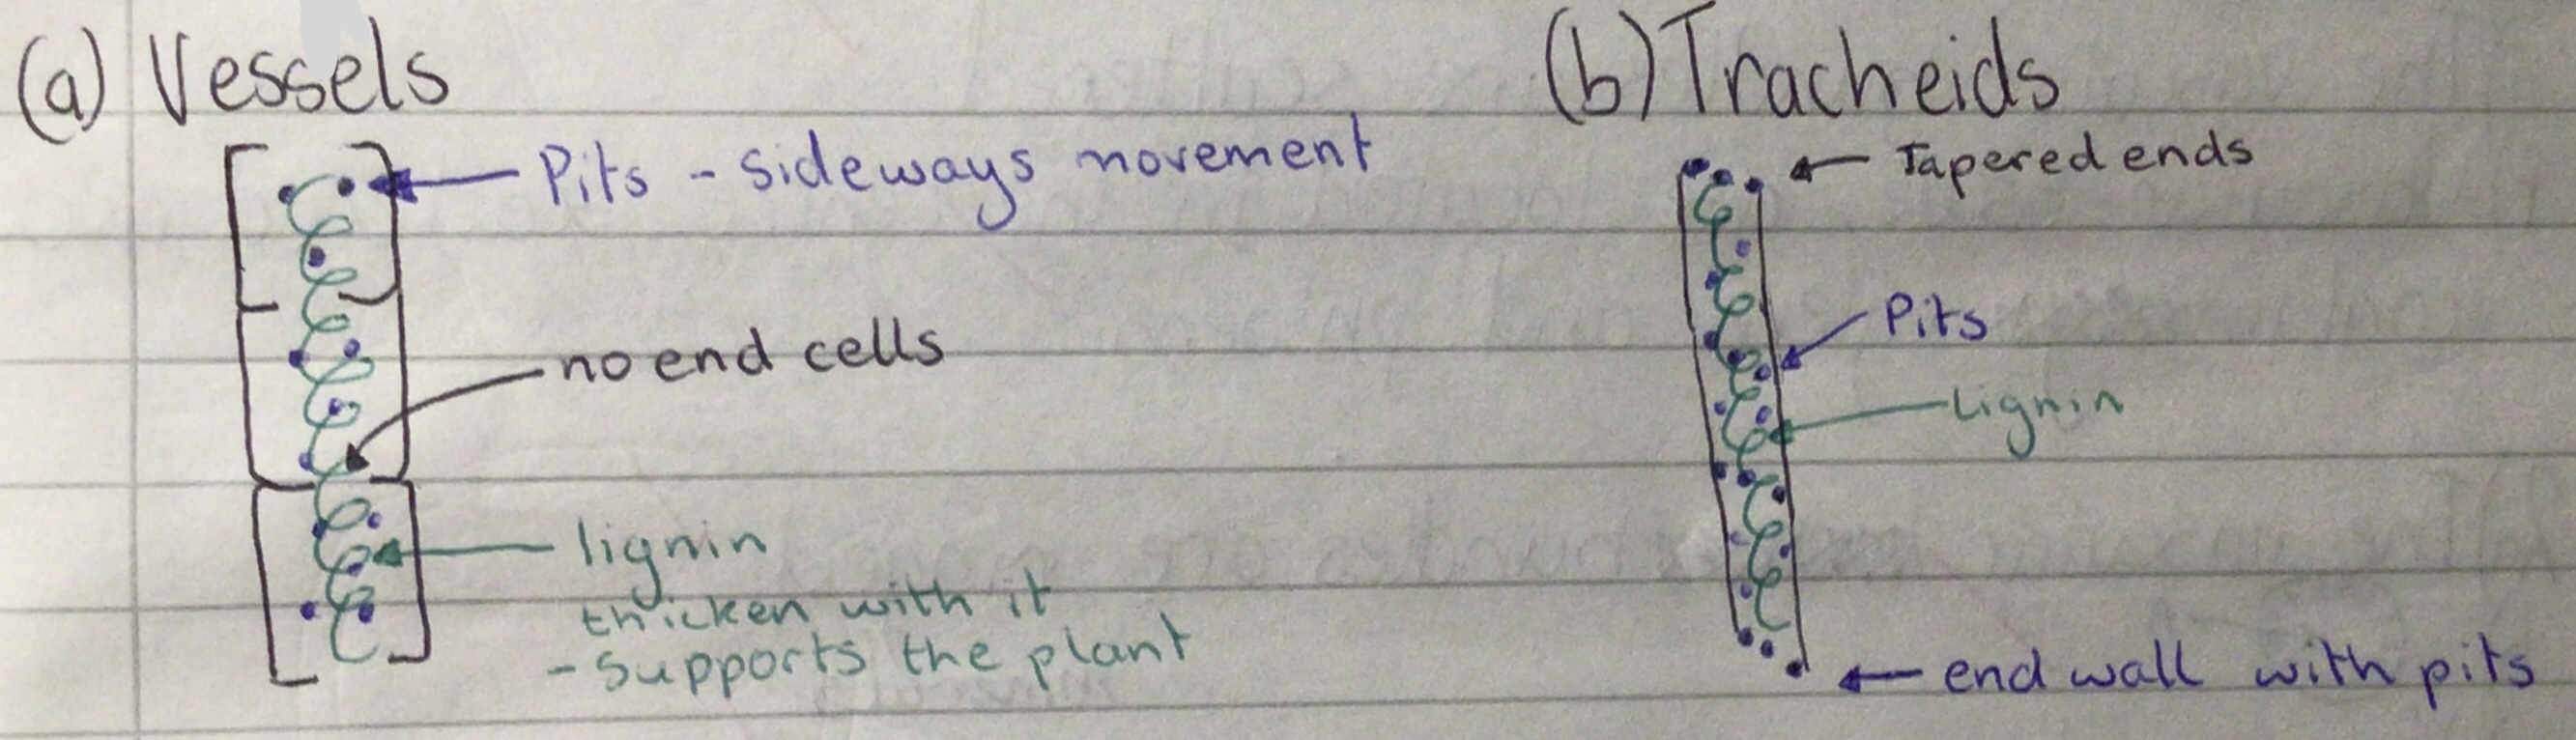 (a) Vessels
Pits - Sideways movement
no end cells
lignin
thicken with it
- Supports the plant
(b) Tracheids
Tapered ends
Pits
Lignin
end wall with pits